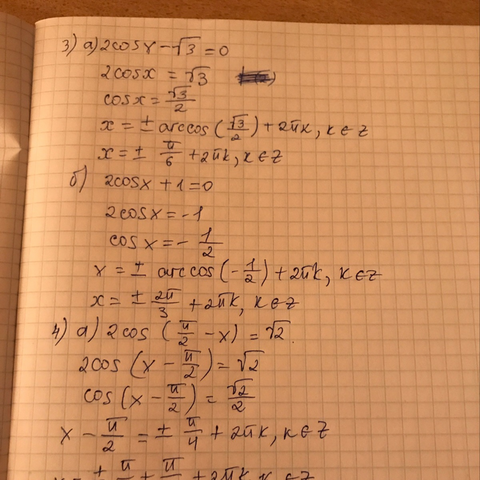 3) а) 2cosx - √3 = 0
2cosx = √3
cosx = √3/2
x = ± arccos(√3/2) + 2πk, k ∈ Z
x = ± π/6 + 2πk, k ∈ Z
б) 2cosx + 1 = 0
2cosx = -1
cosx = - 1/2
x = ± arccos(-1/2) + 2πk, k ∈ Z
x = ± 2π/3 + 2πk, k ∈ Z
4) а) 2cos(π/2 - x) = √2.
2cos(x - π/2) = √2
cos(x - π/2) = √2/2
x - π/2 = ± π/4 + 2πk, k ∈ Z
x = ± π/ + π/ + 2πk, k ∈ Z